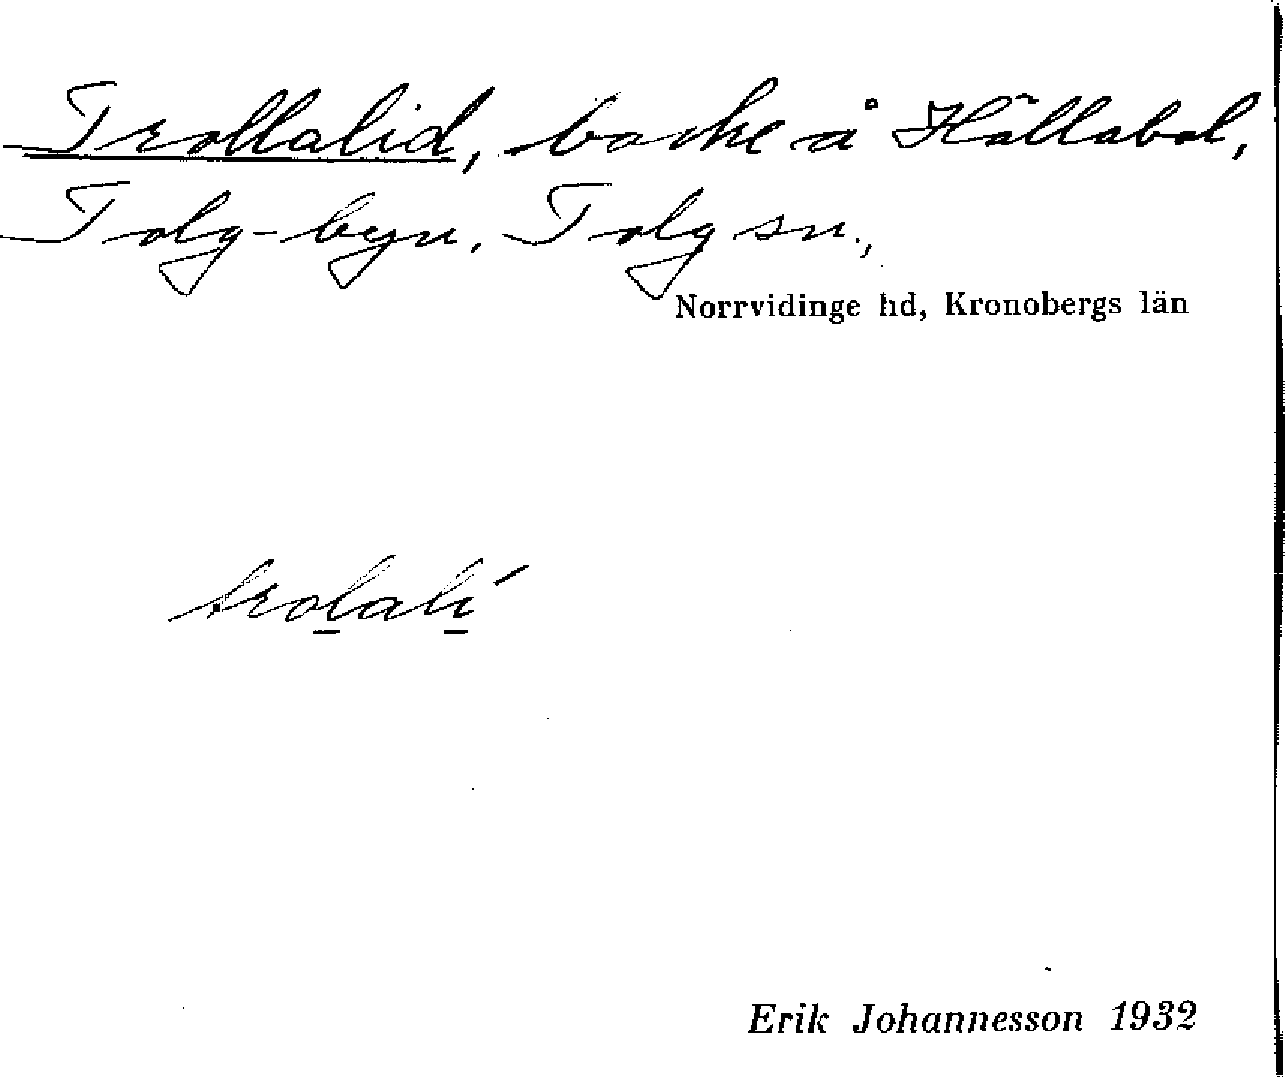 Trollalid, backe å Hållabol,
Tolg-byn, Tolg sn.,
Norrvidinge hd, Kronobergs län
trolalí
Erik Johannesson 1932